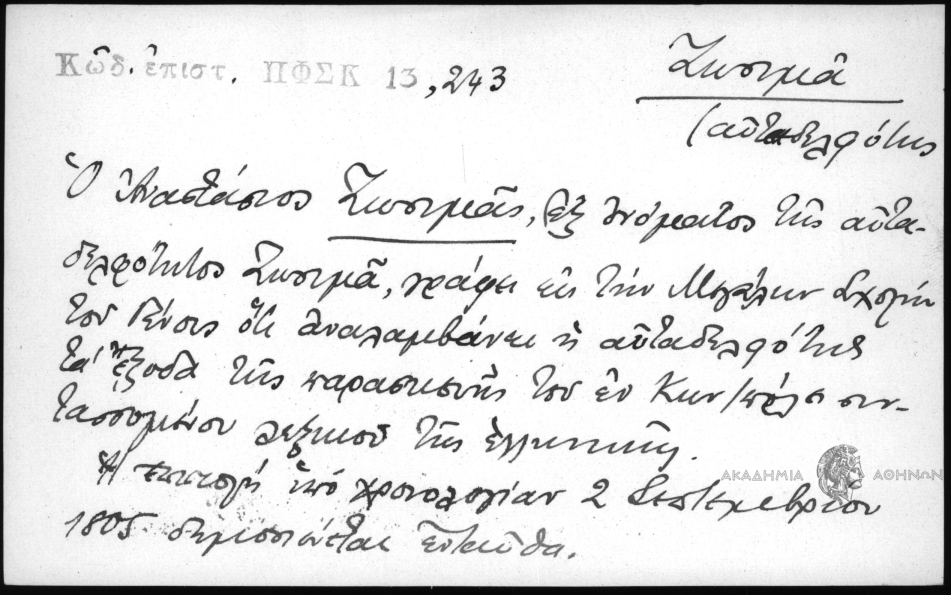 Κῶδ. ἐπιστ. ΠΦΣΚ 13, 243
Ζωσιμᾶ
(αὐταδελφότης
Ὁ Ἀναστάσιος Ζωσιμᾶς, ἐξ ὀνόματος τῆς αὐτα-
δελφότητος Ζωσιμᾶ, γράφει εἰς τὴν Μεγάλην Σχολὴν
τοῦ Γένους ὅτι ἀναλαμβάνει ἡ αὐταδελφότης
τὰ ἔξοδα τῆς παρασκευῆς τοῦ ἐν Κων/πόλει συν-
τασσομένου λεξικοῦ τῆς ἑλληνικῆς.
Ἡ ἐπιστολὴ ὑπὸ χρονολογίαν 2 Σεπτεμβρίου
1805 δημοσιεύεται ἐνταῦθα.
ΑΚΑΔΗΜΙΑ ΑΘΗΝΩΝ